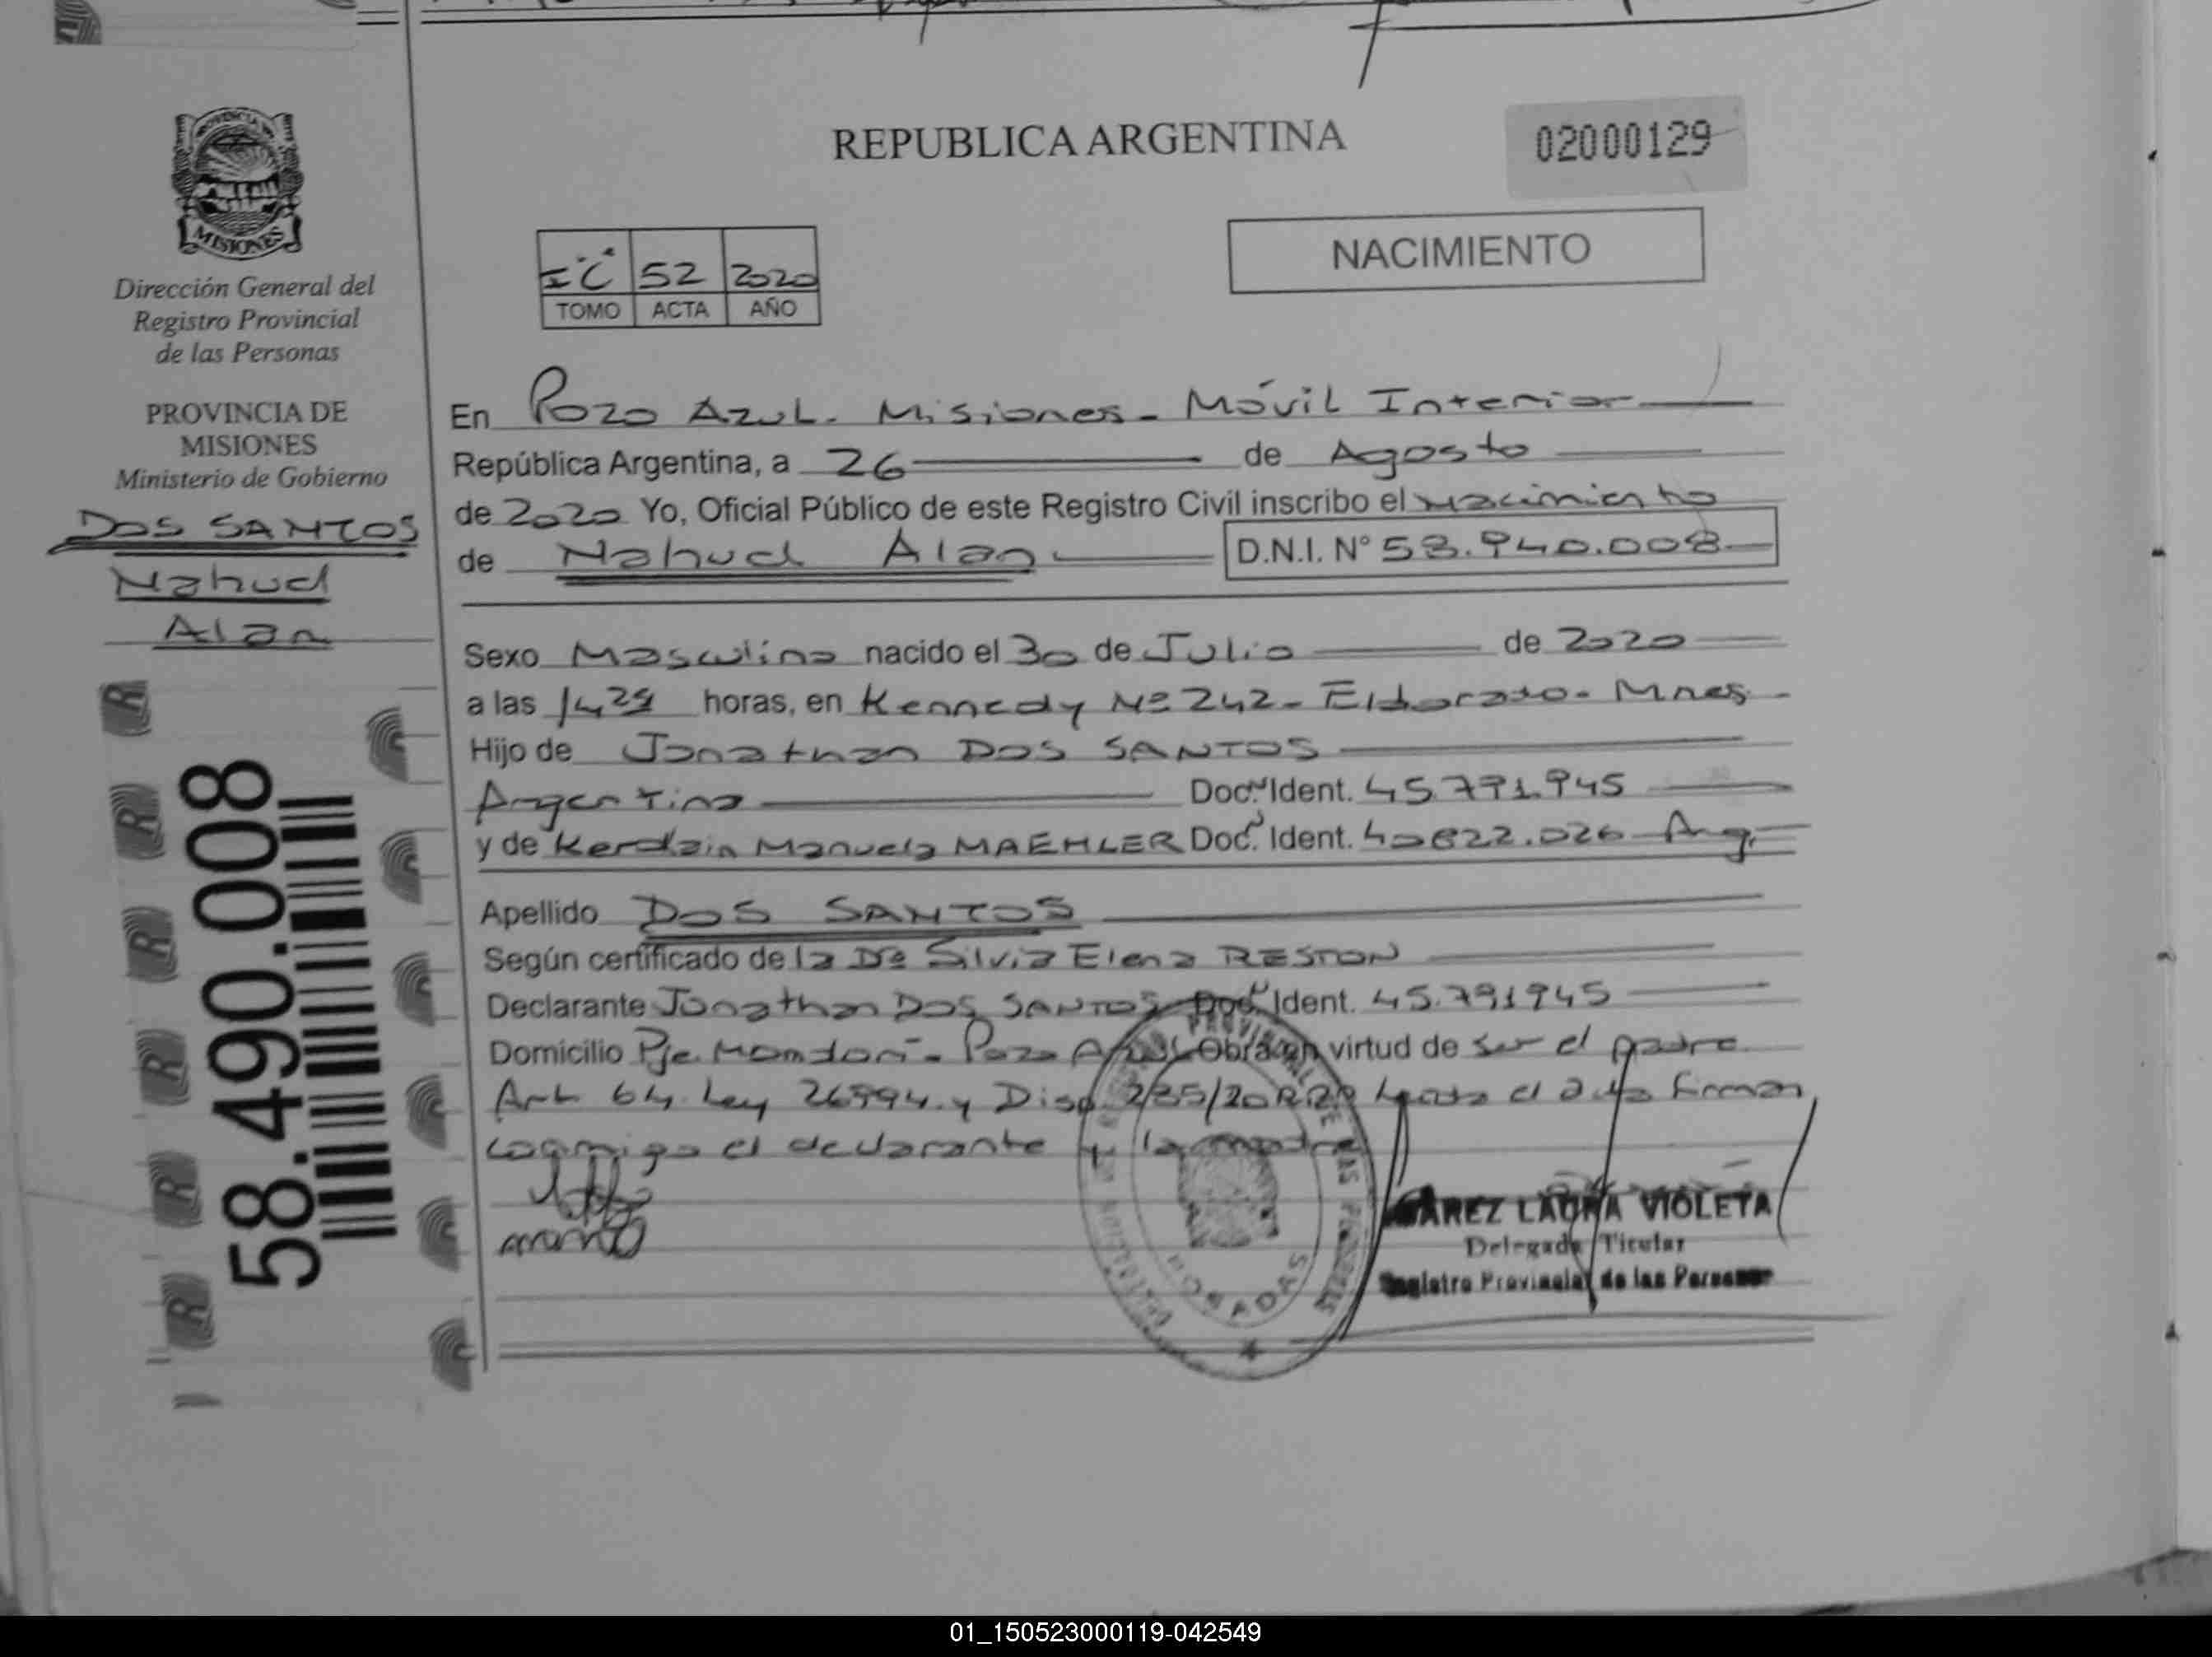 REPUBLICA ARGENTINA
02000129
MISIONES
NACIMIENTO
52 2020
TOMO ACTA AÑO
Dirección General del
Registro Provincial
de las Personas
PROVINCIA DE
MISIONES
Ministerio de Gobierno
DOS SANTOS
Nahuel
Alan
58.490.008
En Pozo Azul. Misiones - Móvil Interior
República Argentina, a 26 de Agosto
de 2020 Yo, Oficial Público de este Registro Civil inscribo el nacimiento
de Nahuel Alan D.N.I. N°
Sexo Masculino nacido el 30 de Julio de 2020
a las 14 29 horas, en Kennedy Nº 242 - Eldorado - Mnes.
Hijo de Jonathan DOS SANTOS
Argentino Doc. Ident. 45.791.945
y de Manuela MAEHLER Doc. Ident. 40822.026 Arg.
Apellido DOS SANTOS
Según certificado de la Dra Silvia Elena RESTON
Declarante Jonathan DOS SANTOS Doc. Ident. 45.791945
Domicilio Pje. Mondorí - Pozo Azul Obra en virtud de ser el padre
Art 64. Ley 26994. y Disp. 235/20 leída el acta firman
conmigo el declarante y la madre
POSADAS
LAURA VIOLETA
Delegada Titular
Registro Provincial de las Personas
01_150523000119-042549